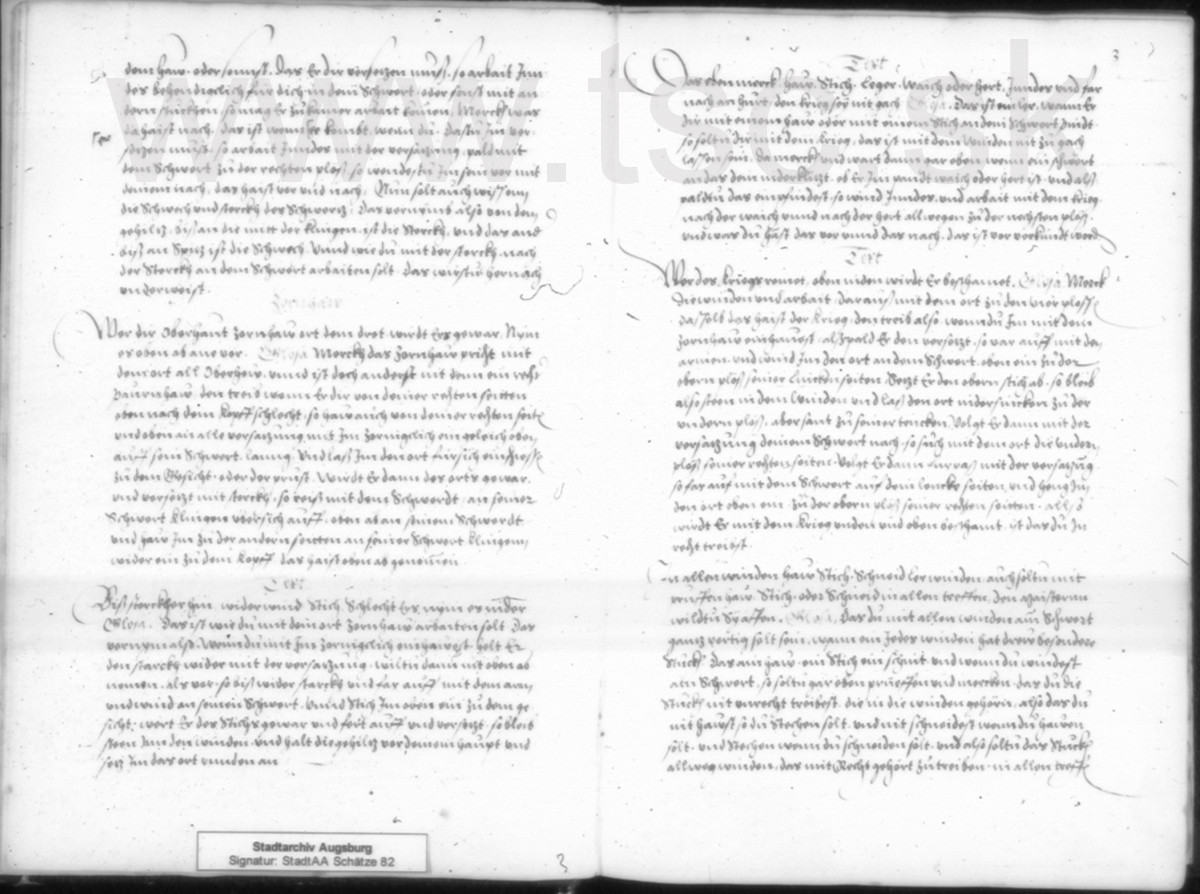 dem haw oder sonnst. das Er dir versetzen muß, so arbait Inn
des behendigclich für dich in dem Schwert, oder sonst mit an
dern stuckhen, so mag Er zů kainer arbait komen, Merck was
da haist nach, das ist wenn Er kombt, wenn du. dastu Im ver
setzen můst. so arbait Inndes mit der versatzung, pald mit
dem Schwert zu der nechsten ploß, so wendestu Im sein vor mit
deinem nach, das haist vor vnd nach. Nun solt auch wissenn
die Schwech vnd sterckh des Schwertz, Das vernÿmb also von dem
gehiltz, bis an die mitt der klingen, ist die Sterckh, vnd das and
biß an Spitz ist die Schwech, Vnnd wie du mit der sterckh, nach
der Sterckh an dem Schwert arbaiten solt, das wirstu hernach
vnderweist
Zornhaw
Wer dir Oberhaut zornhaw ort dem drot, wirdt Ers gewar, Nÿm
es oben ab ane var. Glosa. Merckh das zornhaw pricht mit
dem ort all Oberhew, vnnd ist doch anderst nit denn ein recht
Paurnhaw, den treib wenn Er dir von deiner rechten seitten
oben nach dem Kopff schlecht, so haw auch von deiner rechten seitt
vnd oben an alle versatzung mit Im zornigclich ein geleich oben
auff sein Schwert, lanng, Vnd laß Im den ort für sich einschiess
zu dem Gesicht, oder der prust. Wirdt Er dann des orts gewar,
vnd versetzt mit sterckh, so reiß mit dem Schwerdt, an seiner
Schwert klingen vbersich auff, oben ab an seinem Schwerdt
vnd haw Im zu der andern seitten an seiner Schwert klingenn,
wider ein zu dem Kopff, das haist oben ab genomen
Text
Biß sterckher hin, wider wind Stich, Schlecht Ers, nÿm es nider
Glosa. Das ist wie du mit dem ort zornhaw arbaiten solt, Das
vernÿm also, Wenn du mit Im zornigclich einhawest, helt Er
den starckh wider mit der versatzung, wiltu dann nit oben ab
nemen, als vor, so biß wider starckh vnd far auff mit dem arm
vnd wind an seinem Schwert, vnnd stich Im oben ein zu dem ge
sicht, wert Er des Stichs gewar vnd fert auff vnd versetzt, so bleib
steen Inn den winden, vnd halt die gehiltz vor deinem haupt vnd
setz Im das ort vnnden an
3
3
Text
Das eben merck, haw, Stich, leger, Waich oder hert, Inndes vnd far
nach an hurt, dem krieg seÿ nit gach Glosa. Das ist ein ler, wann Er
dir mit einem haw oder mit einem Stich an dem Schwert Pindt
so soltu dir mit dem krieg, das ist mit dem Winden nit zu gach
lassen sein. Da merckh vnd wart dann gar eben wenn ein schwert
an das dem niderklitzt, ob Er Im pandt waich oder hert ist, vnd als
paldtu das empfindest, so wind Inndes, vnd arbait mit dem krieg
nach der waich vnnd nach der hert all wegen zu der nechsten ploß,
vnd was du hast das vor vnnd das nach, Das ist vor verkündt word
Text
Wer des kriegs remet, oben niden wirdt Er beschamet. Glosa. Merck
die winden vnd arbait, daraus mit dem ort zu den vier ploss
dasselb das haist der Krieg, den treib also, wenn du Im mit dem
zornhaw einhawest, alspald Er den versetzt, so var auff mit den
armen, vnd wind Im den ort an dem Schwert, oben ein zu der
obern ploß seiner Lincken seiten, Setzt Er den obern stich ab, so bleib
also steen in dem Winden vnd laß den ort nidersincken zu der
vndern ploß, aber sant zu seiner lincken, Volgt Er dann mit der
versatzung deinem Schwert nach, so such mit dem ort die vndern
ploß seiner rechten seiten, Volgt Er dann furpaß mit der versatzung
so far auf mit dem Schwert auf dein lincke seiten, vnd heng Im
den ort oben ein, zu der obern ploß seiner rechten seitten, also
wirdt Er mit dem Krieg vnden vnd oben beschamt, ist das du In
recht treibst
In allen winden haw Stich, Schneid ler winden, auch soltu mit
prueffen haw Stich, oder Schneid in allen treffen, Den maistern
wildtu Sÿ affen. Glosa. Das du mit allen winden am Schwert
gantz vertig solt sein, wann ein Jedes winden hat dreu besonder
Stuck, Das ain haw, ein Stich ein schnit vnd wenn du windest
am Schwert, so soltu gar eben prueffen vnd mercken, das du die
Stuck nit vnrecht treibest, die in die winden gehörn, also das du
nit hawst so du Stechen solt, vnd nit schneidest wenn du hawen
solt, vnd Stechen wenn du schneiden solt, vnd also soltu das Stuck
allweg winden, das mit Recht gehört zu treiben, in allen treff
www.tsc
Stadtarchiv Augsburg
Signatur: StadtAA Schätze 82